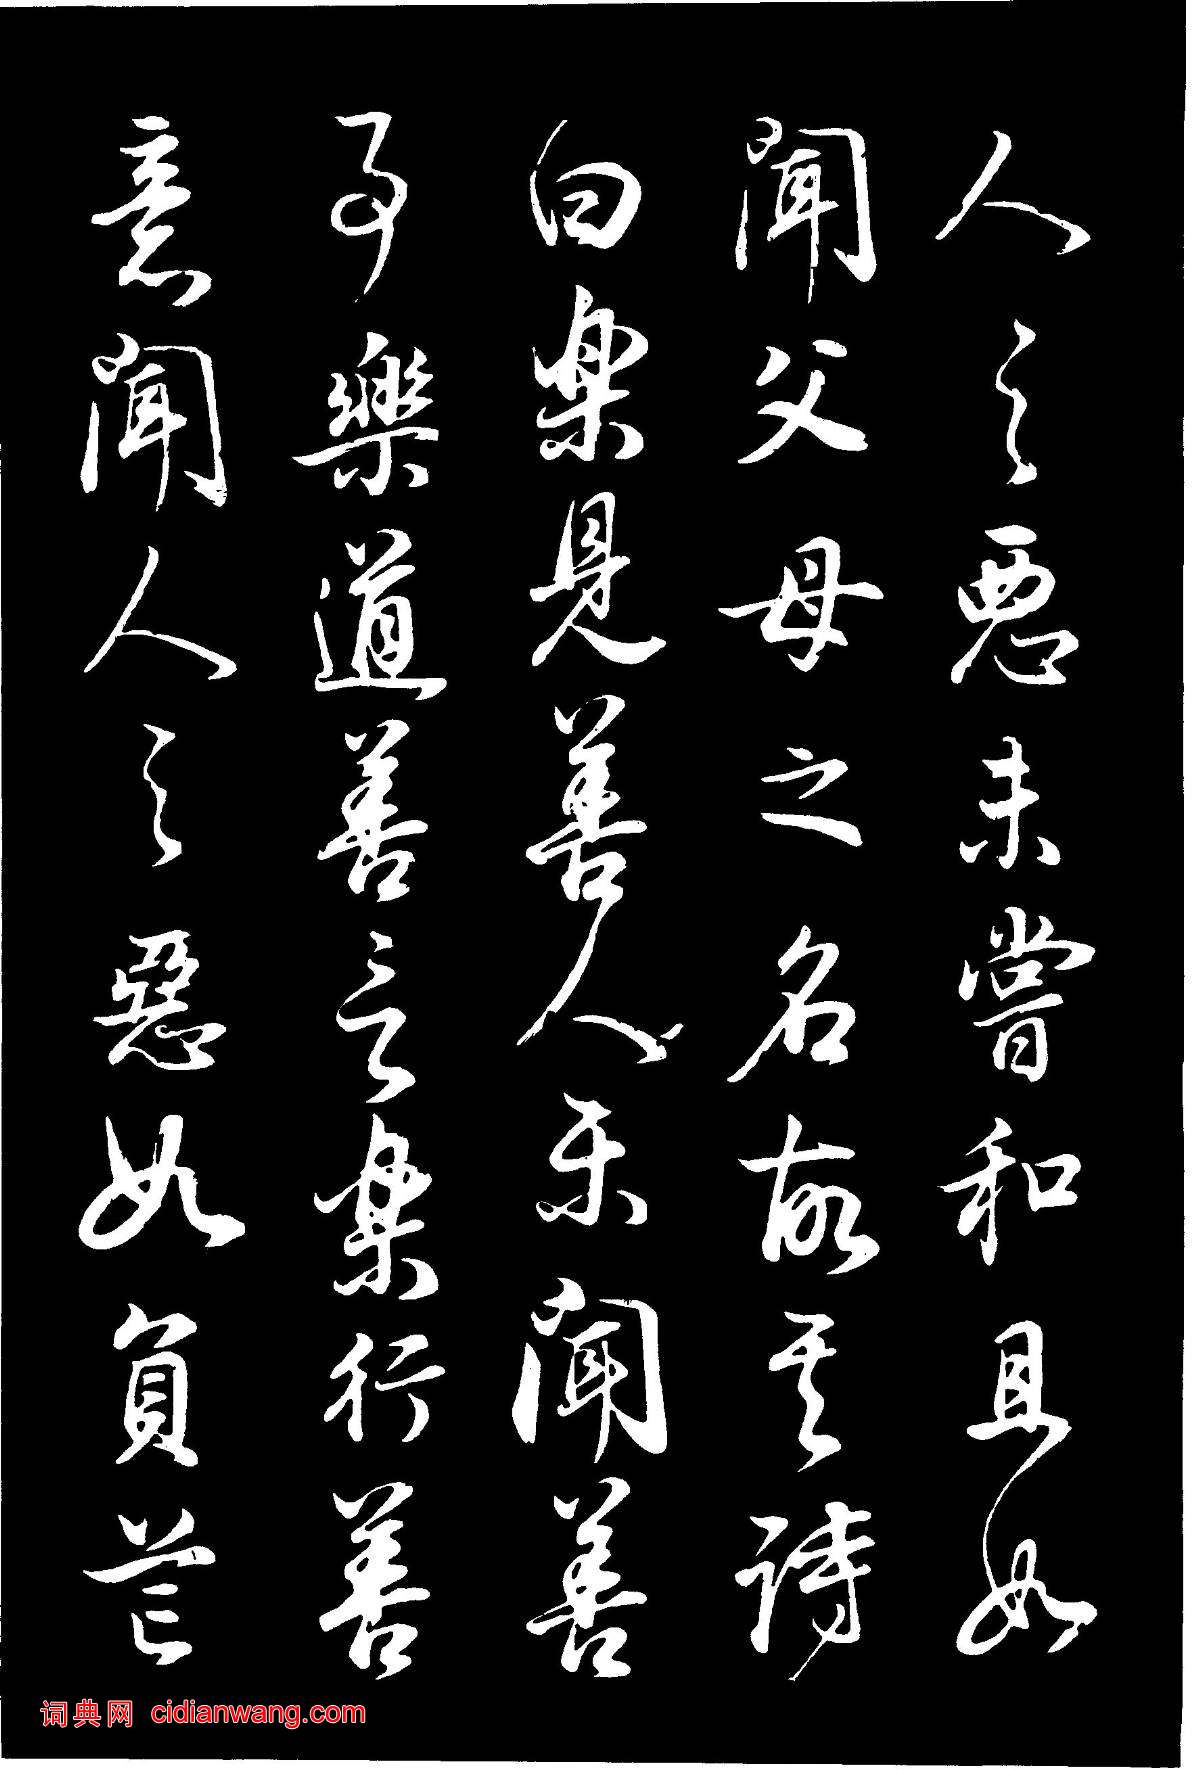 人之惡未嘗和且如
聞父母之名故其詩
曰樂見善人樂聞善
事樂道善言樂行善
意聞人之惡如負芒
词典网 cidianwang.com